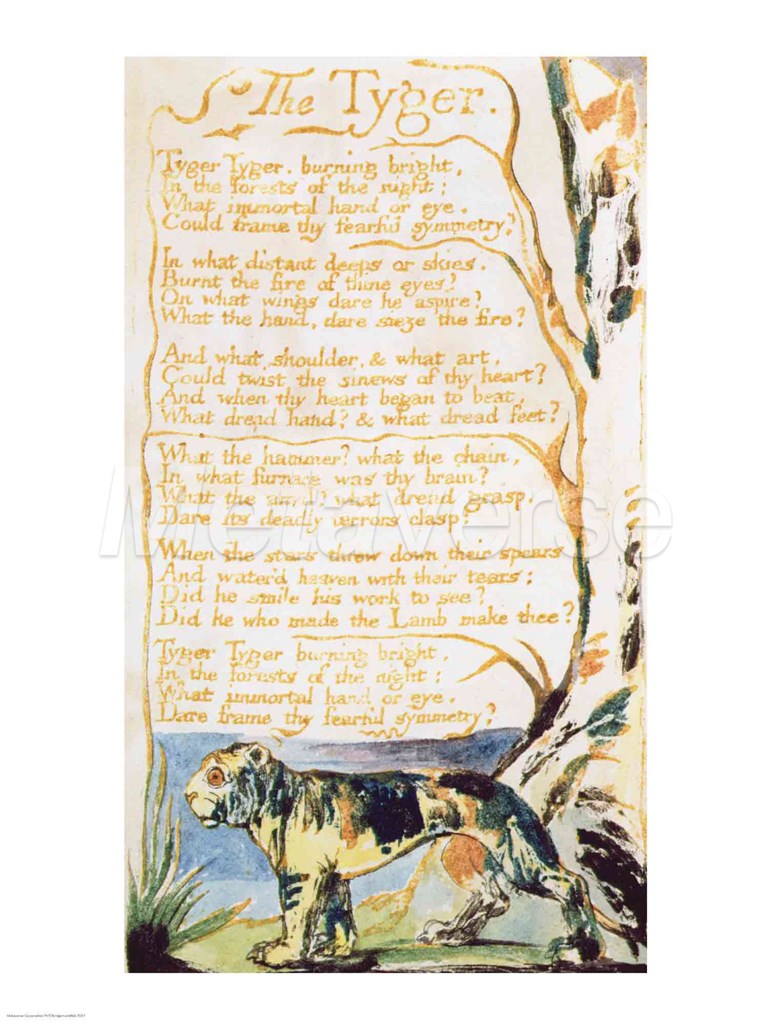 The Tyger.
Tyger Tyger. burning bright,
In the forests of the night;
What immortal hand or eye.
Could frame thy fearful symmetry?
In what distant deeps or skies.
Burnt the fire of thine eyes?
On what wings dare he aspire?
What the hand, dare sieze the fire?
And what shoulder, & what art,
Could twist the sinews of thy heart?
And when thy heart began to beat,
What dread hand? & what dread feet?
What the hammer? what the chain,
In what furnace was thy brain?
What the anvil? what dread grasp,
Dare its deadly terrors clasp!
When the stars threw down their spears
And water'd heaven with their tears:
Did he smile his work to see?
Did he who made the Lamb make thee?
Tyger Tyger burning bright,
In the forests of the night:
What immortal hand or eye,
Dare frame thy fearful symmetry?
Metaverse